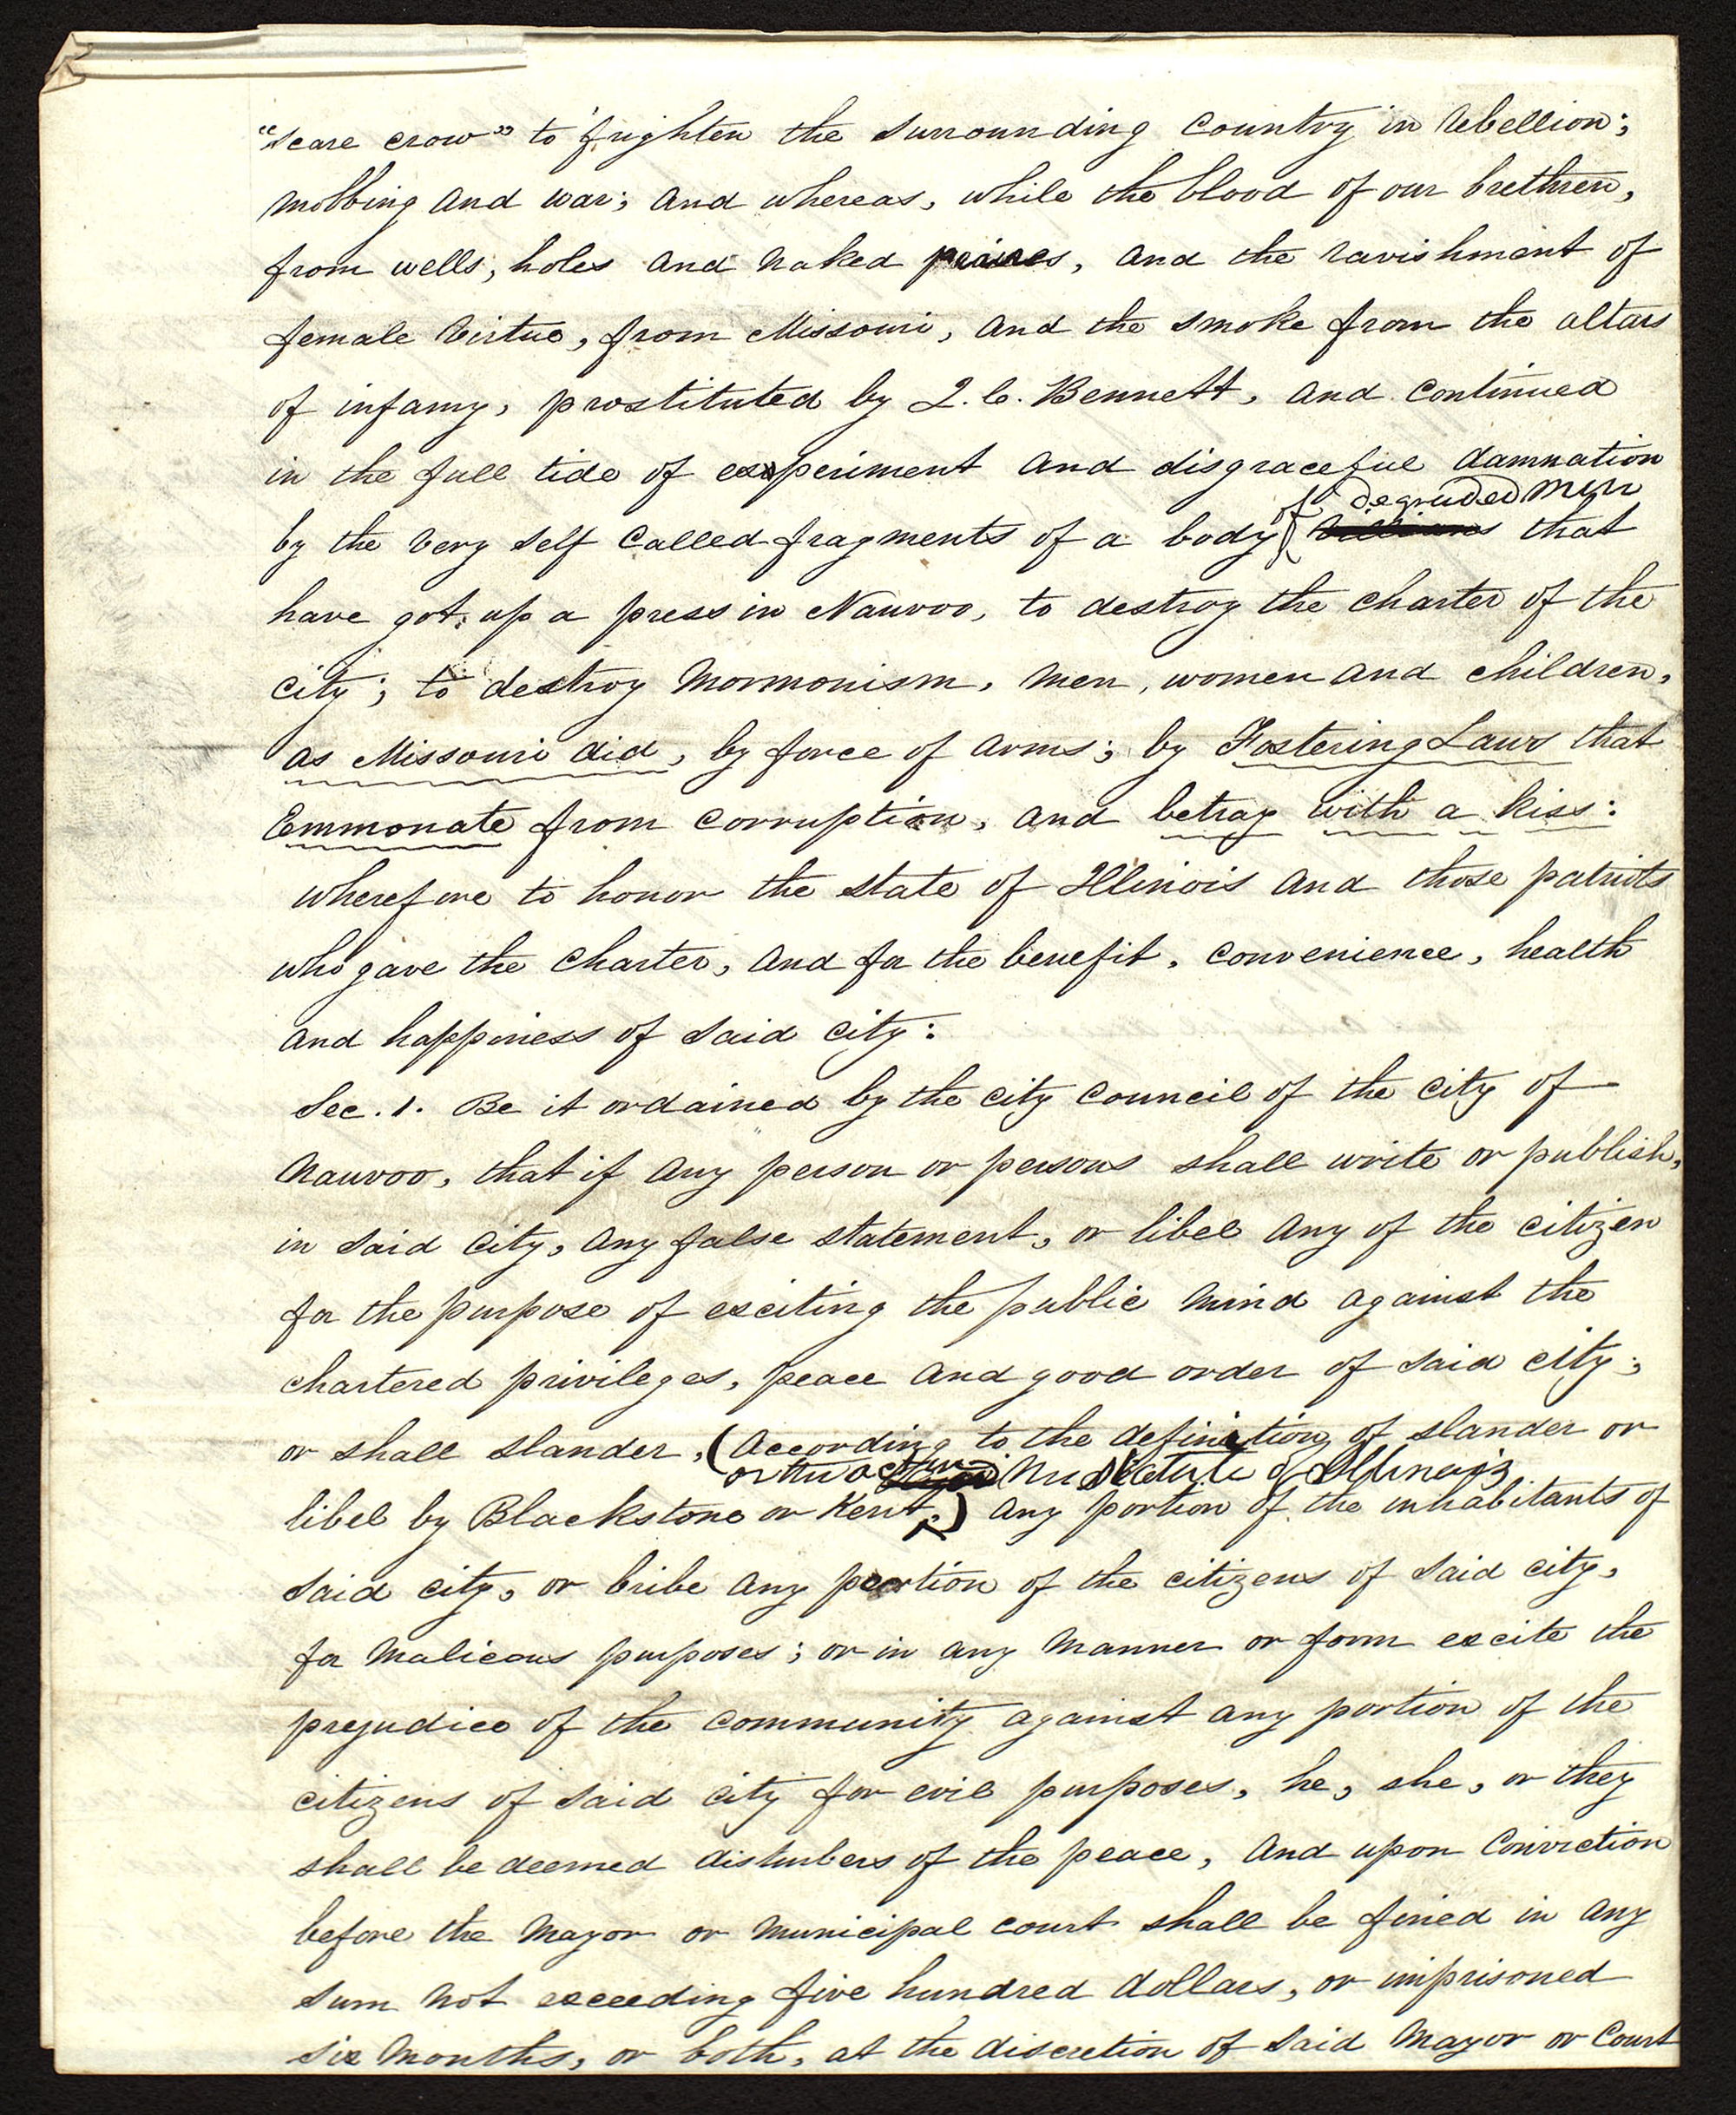 "scare crow" to frighten the surrounding country in rebellion;
mobbing and war; and whereas, while the blood of our brethren,
from wells, holes and naked prairies, and the ravishment of
female virtue, from Missouri, and the smoke from the altars
of infamy, prostituted by J. C. Bennett, and continued
in the full tide of experiment and disgraceful damnation
of degraded men
by the very self called fragments of a body that
have got up a press in Nauvoo, to destroy the charter of the
city; to destroy Mormonism, men, women and children,
as Missouri did, by force of arms; by Fostering Laws that
Emmonate from corruption, and betray with a kiss:
wherefore to honor the state of Illinois and those patriots
who gave the charter, and for the benefit, convenience, health
and happiness of said city:
Sec. 1. Be it ordained by the city council of the city of
Nauvoo, that if any person or persons shall write or publish,
in said city, any false statement, or libel any of the citizen
for the purpose of exciting the public mind against the
chartered privileges, peace and good order of said city;
or shall slander, (according to the definition of slander or
or the act in the Statute of Illinois
libel by Blackstone or Kent,) any portion of the inhabitants of
said city, or bribe any portion of the citizens of said city,
for malicous purposes; or in any manner or form excite the
prejudice of the community against any portion of the
citizens of said city for evil purposes, he, she, or they
shall be deemed disturbers of the peace, and upon conviction
before the Mayor or municipal court shall be fined in any
sum not exceeding five hundred dollars, or imprisoned
six months, or both, at the discretion of said Mayor or Court